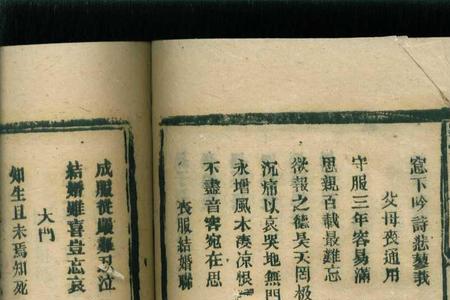 窓下吟詩悲蓼莪
父母喪通用
守服三年容易滿
思親百載最難忘
欲報之德昊天罔極
沉痛以哀哭地無門
永增風木凄涼恨
不盡音容宛在思
喪服結婚聯
成服從權難忍泣
結婚雖喜豈忘哀
大門
知生且未焉知死